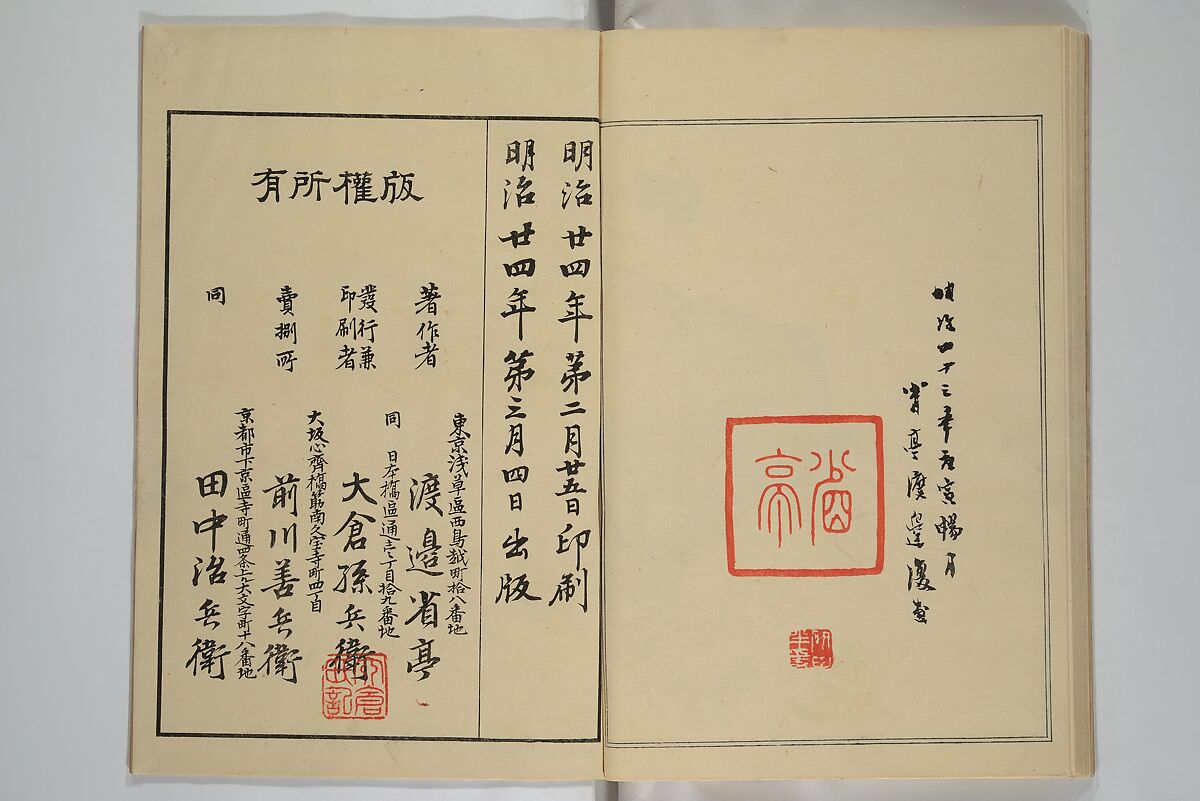 明治二十三年庚寅暢月
省亭渡邊
省亭
明治廿四年第二月廿五日印刷
明治廿四年第三月四日出版
版權所有
著作者
東京浅草區西鳥越町拾八番地
渡邉省亭
發行兼
印刷者
同 日本橋區通壱丁目拾九番地
大倉孫兵衛
賣捌所
大坂心齊橋筋南久宝寺町四丁目
前川善兵衛
同
京都市下京區寺町通四条上ル大文字町十八番地
田中治兵衛